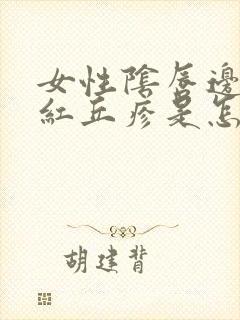 女性陰唇邊
紅丘疹是怎
胡建背